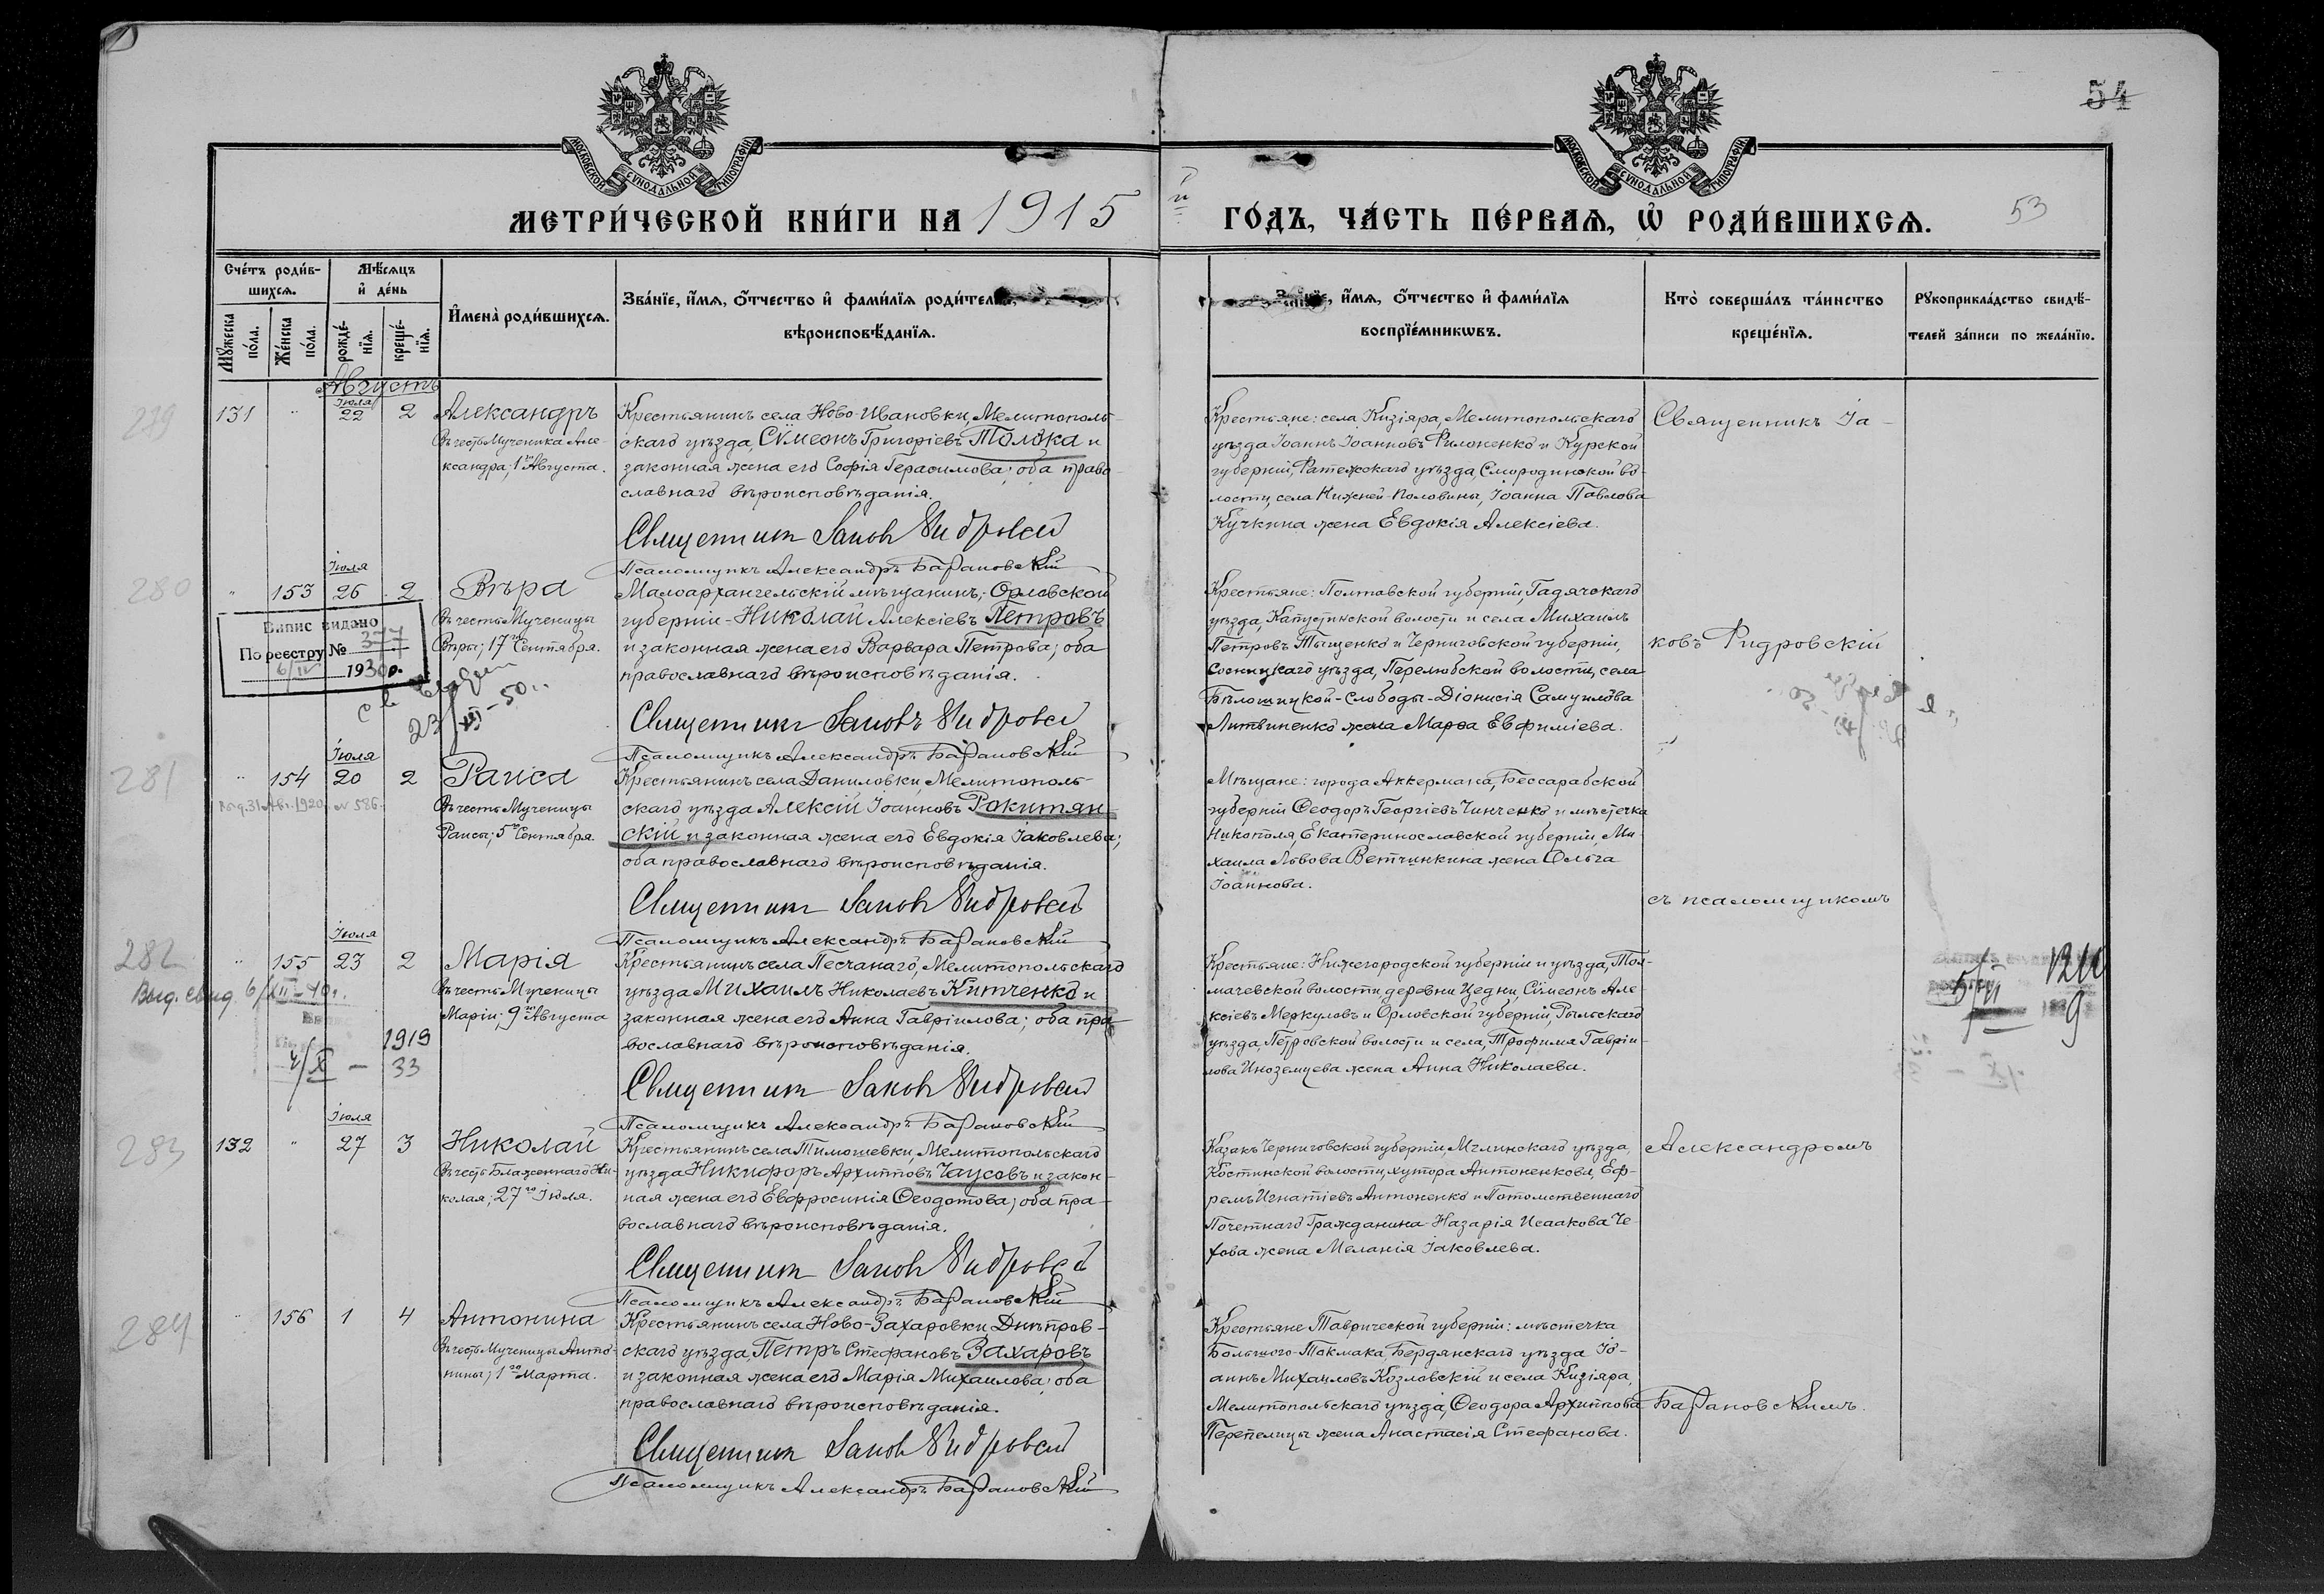 54
МОСКОВСКОЙ СѴНОДАЛЬНОЙ ТИПОГРАФІИ
МОСКОВСКОЙ СѴНОДАЛЬНОЙ ТИПОГРАФІИ
МЕТРИ́ЧЕСКОЙ КНИ́ГИ НА 1915
й ГО́ДЪ, ЧА́СТЬ ПЕ́РВАЯ, Ѡ РОДИ́ВШИХСѦ.
53
Сче́тъ роди́в-
шихсѧ.
Мѣ́сѧцъ
и҆ де́нь
Мꙋ́жеска по́ла.
Же́нска по́ла.
рожде́-
нїѧ.
креще́-
нїѧ.
И҆мена̀ роди́вшихсѧ.
Зва́нїе, и҆́мѧ, ѻ҆́тчество и҆ фами́лїѧ роди́тел
вѣроисповѣ́данїѧ.
и҆́мѧ, ѻ҆́тчество и҆ фами́лїѧ
воспрїе́мникѡвъ.
Кто̀ соверша́лъ та́инство
креще́нїѧ.
Рꙋкоприкла́дство свидѣ́-
телей за́писи по жела́нїю.
Августъ
279
131 " Іюля 22 2
Александръ
Въ честь Мученика Але-
ксандра, 1го Августа.
Крестьянинъ села Ново-Ивановки, Мелитополь-
скаго уѣзда, Сѵмеонъ Григоріевъ Толока и
законная жена его Софія Герасимова; оба право-
славнаго вѣроисповѣданія.
Священникъ Іаковъ Фидровскій
Псаломщикъ Александръ Барановскій
Крестьяне: села Кизіяра, Мелитопольскаго
уѣзда Іоаннъ Іоанновъ Филоненко и Курской
губерніи, Фатежскаго уѣзда, Смородинской во-
лости, села Нижней-Половины, Іоанна Павлова
Кучкина жена Евдокія Алексіева.
Священникъ Іа-
280
" 153 Іюля 26 2
Вѣра
Въ честь Мученицы
Вѣры; 17го Сентября.
Малоархангельскій мѣщанинъ, Орловской
губерніи - Николай Алексіевъ Петровъ
и законная жена его Варвара Петрова; оба
православнаго вѣроисповѣданія.
Священникъ Іаковъ Фидровскій
Псаломщикъ Александръ Барановскій
Випис видано
По реєстру № 377
6/IV 1930 р.
23/XII - 50
Крестьяне: Полтавской губерніи, Гадячскаго
уѣзда, Капустинской волости и села Михаилъ
Петровъ Тыщенко и Черниговской губерніи,
Сосницкаго уѣзда, Перелюбской волости, села
Бѣлошицкой-Слободы-Діонисія Самуилова
Литвиненко жена Марѳа Евфиміева.
ковъ Фидровскій
281
" 154 Іюля 20 2
Выд. 31 Авг. 1920 № 586
Раиса
Въ честь Мученицы
Раисы; 5го Сентября.
Крестьянинъ села Даниловки, Мелитополь-
скаго уѣзда Алексій Іоанновъ Рокитян-
скій и законная жена его Евдокія Іаковлева;
оба православнаго вѣроисповѣданія.
Священникъ Іаковъ Фидровскій
Псаломщикъ Александръ Барановскій
Мѣщане: города Аккермана, Бессарабской
губерніи Ѳеодоръ Георгіевъ Чинченко и мѣстечка
Никополя, Екатеринославской губерніи, Ми-
хаила Львова Ветчинкина жена Ольга
Іоаннова.
съ псаломщикомъ
282
" 155 Іюля 23 2
Выд. свид. 6/XII-40г.
1919
4/X - 33
Марія
Въ честь Мученицы
Маріи; 9го Августа
Крестьянинъ села Песчанаго, Мелитопольскаго
уѣзда Михаилъ Николаевъ Китченко и
законная жена его Анна Гавріилова; оба пра-
вославнаго вѣроисповѣданія.
Священникъ Іаковъ Фидровскій
Псаломщикъ Александръ Барановскій
Крестьяне: Нижегородской губерніи и уѣзда, Тол-
мачевской волости, деревни Цедни, Сѵмеонъ Але-
ксіевъ Меркуловъ и Орловской губерніи, Рыльскаго
уѣзда, Петровской волости и села, Трофима Гавріи-
лова Иноземцева жена Анна Николаева.
283
132 " Іюля 27 3
Николай
Въ честь Блаженнаго Ни-
колая; 27го Іюля.
Крестьянинъ села Тимошевки, Мелитопольскаго
уѣзда Никифоръ Архиповъ Чаусовъ и закон-
ная жена его Евфросинія Ѳеодотова; оба пра-
вославнаго вѣроисповѣданія.
Священникъ Іаковъ Фидровскій
Псаломщикъ Александръ Барановскій
Казакъ Черниговской губерніи, Мглинскаго уѣзда,
Костинской волости, хутора Антоненкова, Еф-
ремъ Игнатіевъ Антоненко и Потомственнаго
Почетнаго Гражданина Назарія Исаакова Че-
хова жена Меланія Іаковлева.
Александромъ
284
" 156 1 4
Антонина
Въ честь Мученицы Анто-
нины; 1го Марта.
Крестьянинъ села Ново-Захаровки, Днѣпров-
скаго уѣзда, Петръ Стефановъ Захаровъ
и законная жена его Марія Михаилова; оба
православнаго вѣроисповѣданія.
Священникъ Іаковъ Фидровскій
Псаломщикъ Александръ Барановскій
Крестьяне Таврической губерніи: мѣстечка
Большого-Токмака, Бердянскаго уѣзда Іо-
аннъ Михаиловъ Козловскій и села Кизіяра,
Мелитопольскаго уѣзда, Ѳеодора Архиппова
Перепелицы жена Анастасія Стефанова.
Барановскимъ.